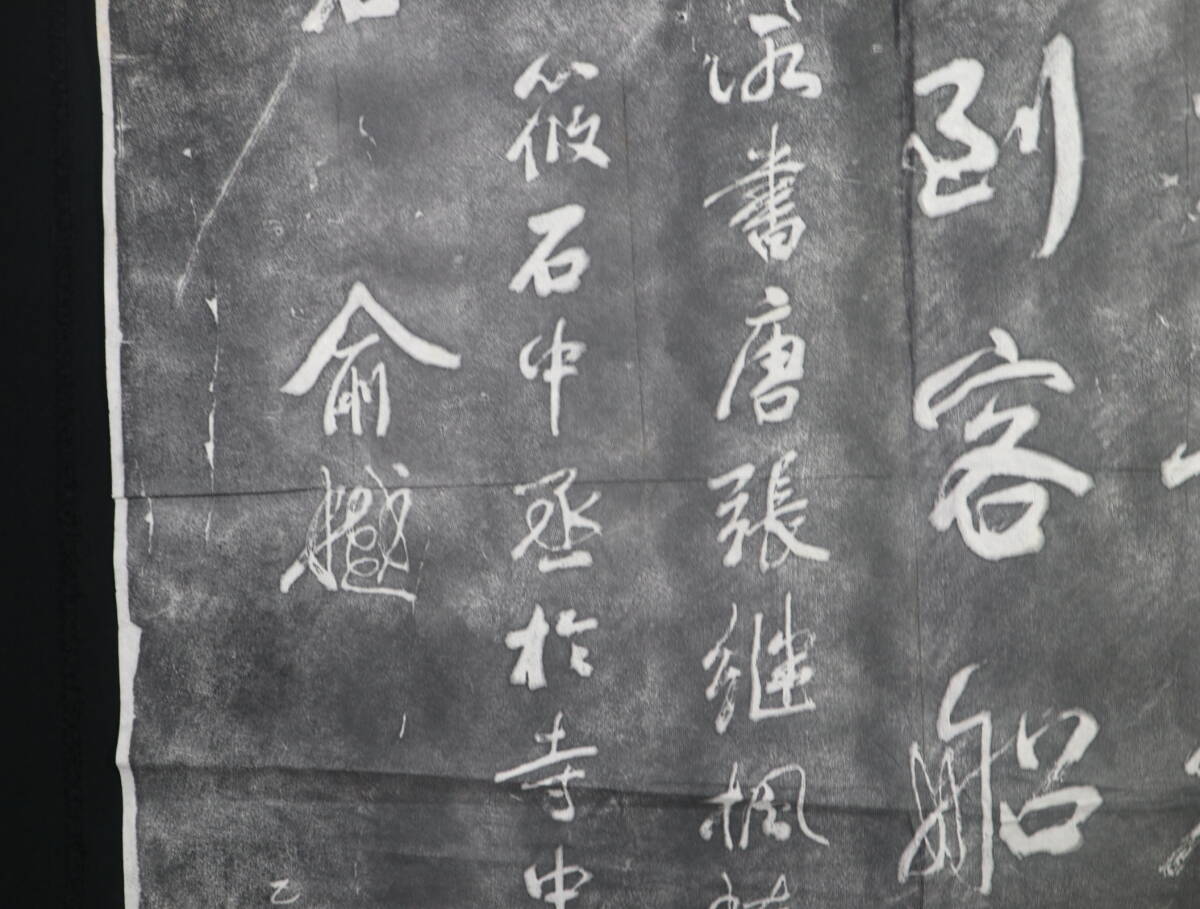 到客船
書唐張繼楓
筱石中丞於寺中
俞樾